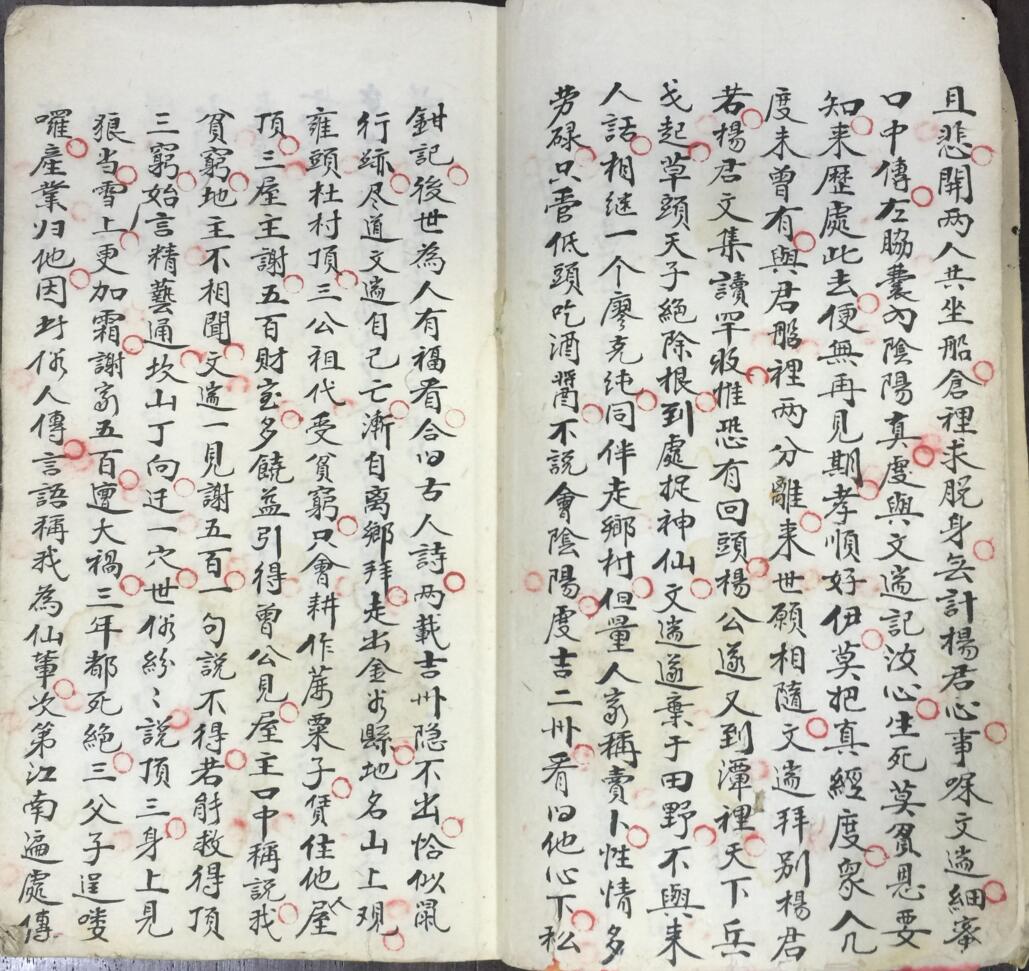 且悲開兩人共坐船倉裡求脱身無計楊君心事喺文遄細審
口中傳左脇囊內陰陽真度與文遄記汝心生死莫貧恩要
知来歷處此去便無再見期孝順好伊莫把真經度衆人几
度未曾有與君船裡两分離来世願相隨文遄拜别楊君
若楊君文集讀罕收惟恐有回頭楊公遂又到潭裡天下兵
戈起草頭天子絕除根到處捉神仙文遄遂棄于田野不與来
人話相继一个廖克纯同伴走鄉村但量人家稱賣卜性情多
劳碌只管低頭吃酒醬不說會陰陽度吉二卅看旧他心下松
鉗記後世為人有福看合旧古人詩两載吉卅隐不出恰似鼠
行跡尽道文遄自己亡漸自离鄉拜走出金省縣地名山上观
雍頭杜村頂三公祖代受貧窮只會耕作萬粟子賃住他人屋
頂三屋主謝五百財宝多饒益引得曾公見屋主口中稱説我
貧窮地主不相聞文遄一見謝五百一句説不得若能救得頂
三窮始言精藝通坎山丁向迁一穴世俗紛〻說頂三身上見
狼当雪上更加霜謝家五百遭大禍三年都死絕三父子逞喽
囉產業归他因此俗人傳言語稱我為仙輩次第江南遍處傳